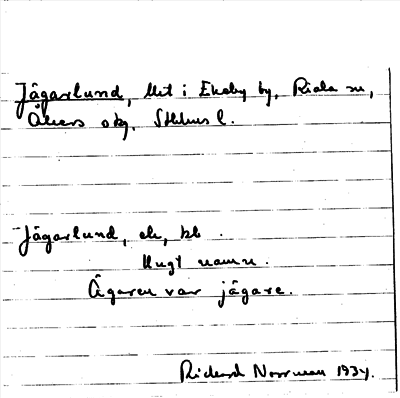 Jägarlund, lht i Ekeby by, Riala sn,
Åkers skg, Sthlms l.
Jägarlund, ek, kb.
Ungt namn.
Ägaren var jägare.
Rickard Norrman 1934.